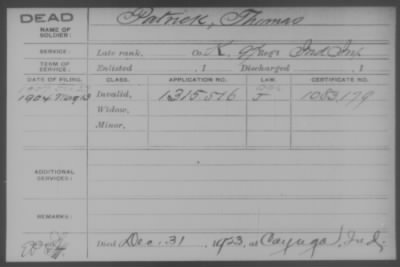 DEAD
NAME OF SOLDIER: Patrick, Thomas
SERVICE: Late rank, Co. K, 9 Reg't Ind. Inf.
TERM OF SERVICE: Enlisted , 1 Discharged , 1
DATE OF FILING. CLASS. APPLICATION NO. LAW. CERTIFICATE NO.
1904 Aug 13 Invalid, 1315,516 J 1083,179
Widow,
Minor,
ADDITIONAL SERVICES:
REMARKS:
Died Dec. 31, 1923, at Cayuga, Ind.